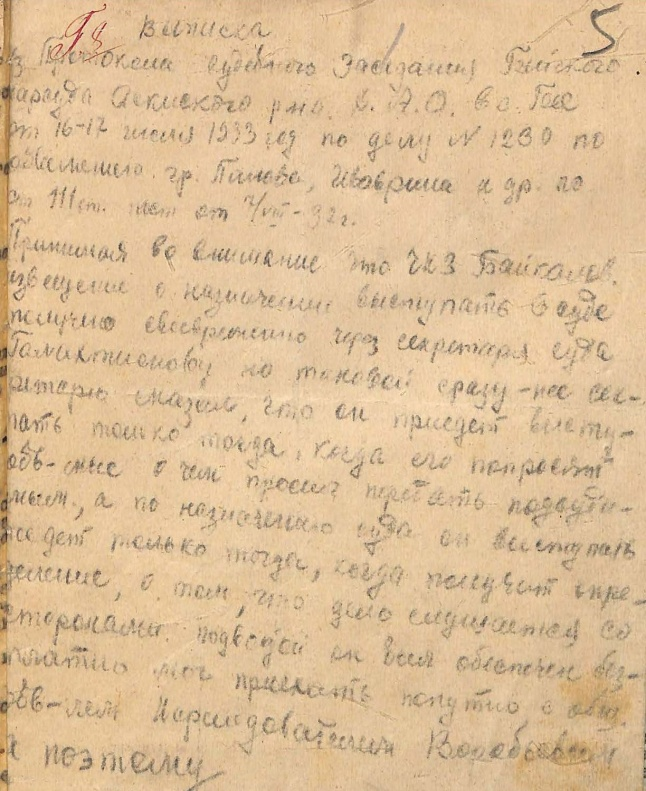 5
Выписка
из Протокола судебного Заседания Бейского
нарсуда Аскизского р-на Х. А. О. в с. Бея
от 16-17 июля 1933 год по делу N 1230 по
обвинению гр. Попова, и др. по
ст от 7/VIII-32г.
Принимая во внимание что ЧКЗ Байкалов.
извещение о назначении выступать в суде
получил своевременно через секретаря суда
но таковой сразу-же сек-
ретарю сказал, что он приедет высту-
пать только тогда, когда его попросят
обв-мые о чем просил передать подсуди-
мым, а по назначению суда он выступать
поедет только тогда, когда получит опре-
деление, о том, что дело слушается со
сторонами. подводой он был обеспечен без-
платно мог приехать попутно с общ.
обв-лем Нарследователем Воробьевым
и поэтому